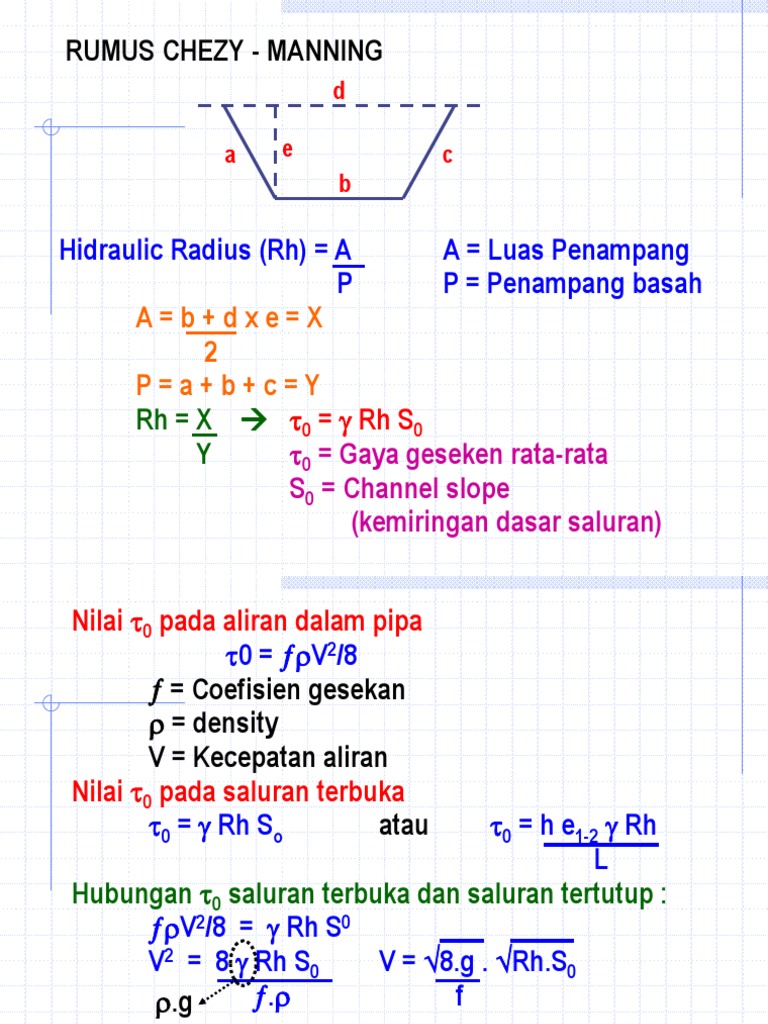 RUMUS CHEZY - MANNING
d
a
e
c
b
Hidraulic Radius (Rh) = A
P
A = Luas Penampang
P = Penampang basah
A = b + d x e = X
2
P = a + b + c = Y
Rh = X → τ0 = γ Rh S0
Y
τ0 = Gaya geseken rata-rata
S0 = Channel slope
(kemiringan dasar saluran)
Nilai τ0 pada aliran dalam pipa
τ0 = ƒρV²/8
ƒ = Coefisien gesekan
ρ = density
V = Kecepatan aliran
Nilai τ0 pada saluran terbuka
τ0 = γ Rh So atau τ0 = h e1-2 γ Rh
L
Hubungan τ0 saluran terbuka dan saluran tertutup :
ƒρV²/8 = γ Rh S⁰
V² = 8 γ Rh S0 V = √8.g . √Rh.S0
ρ.g ƒ.ρ f